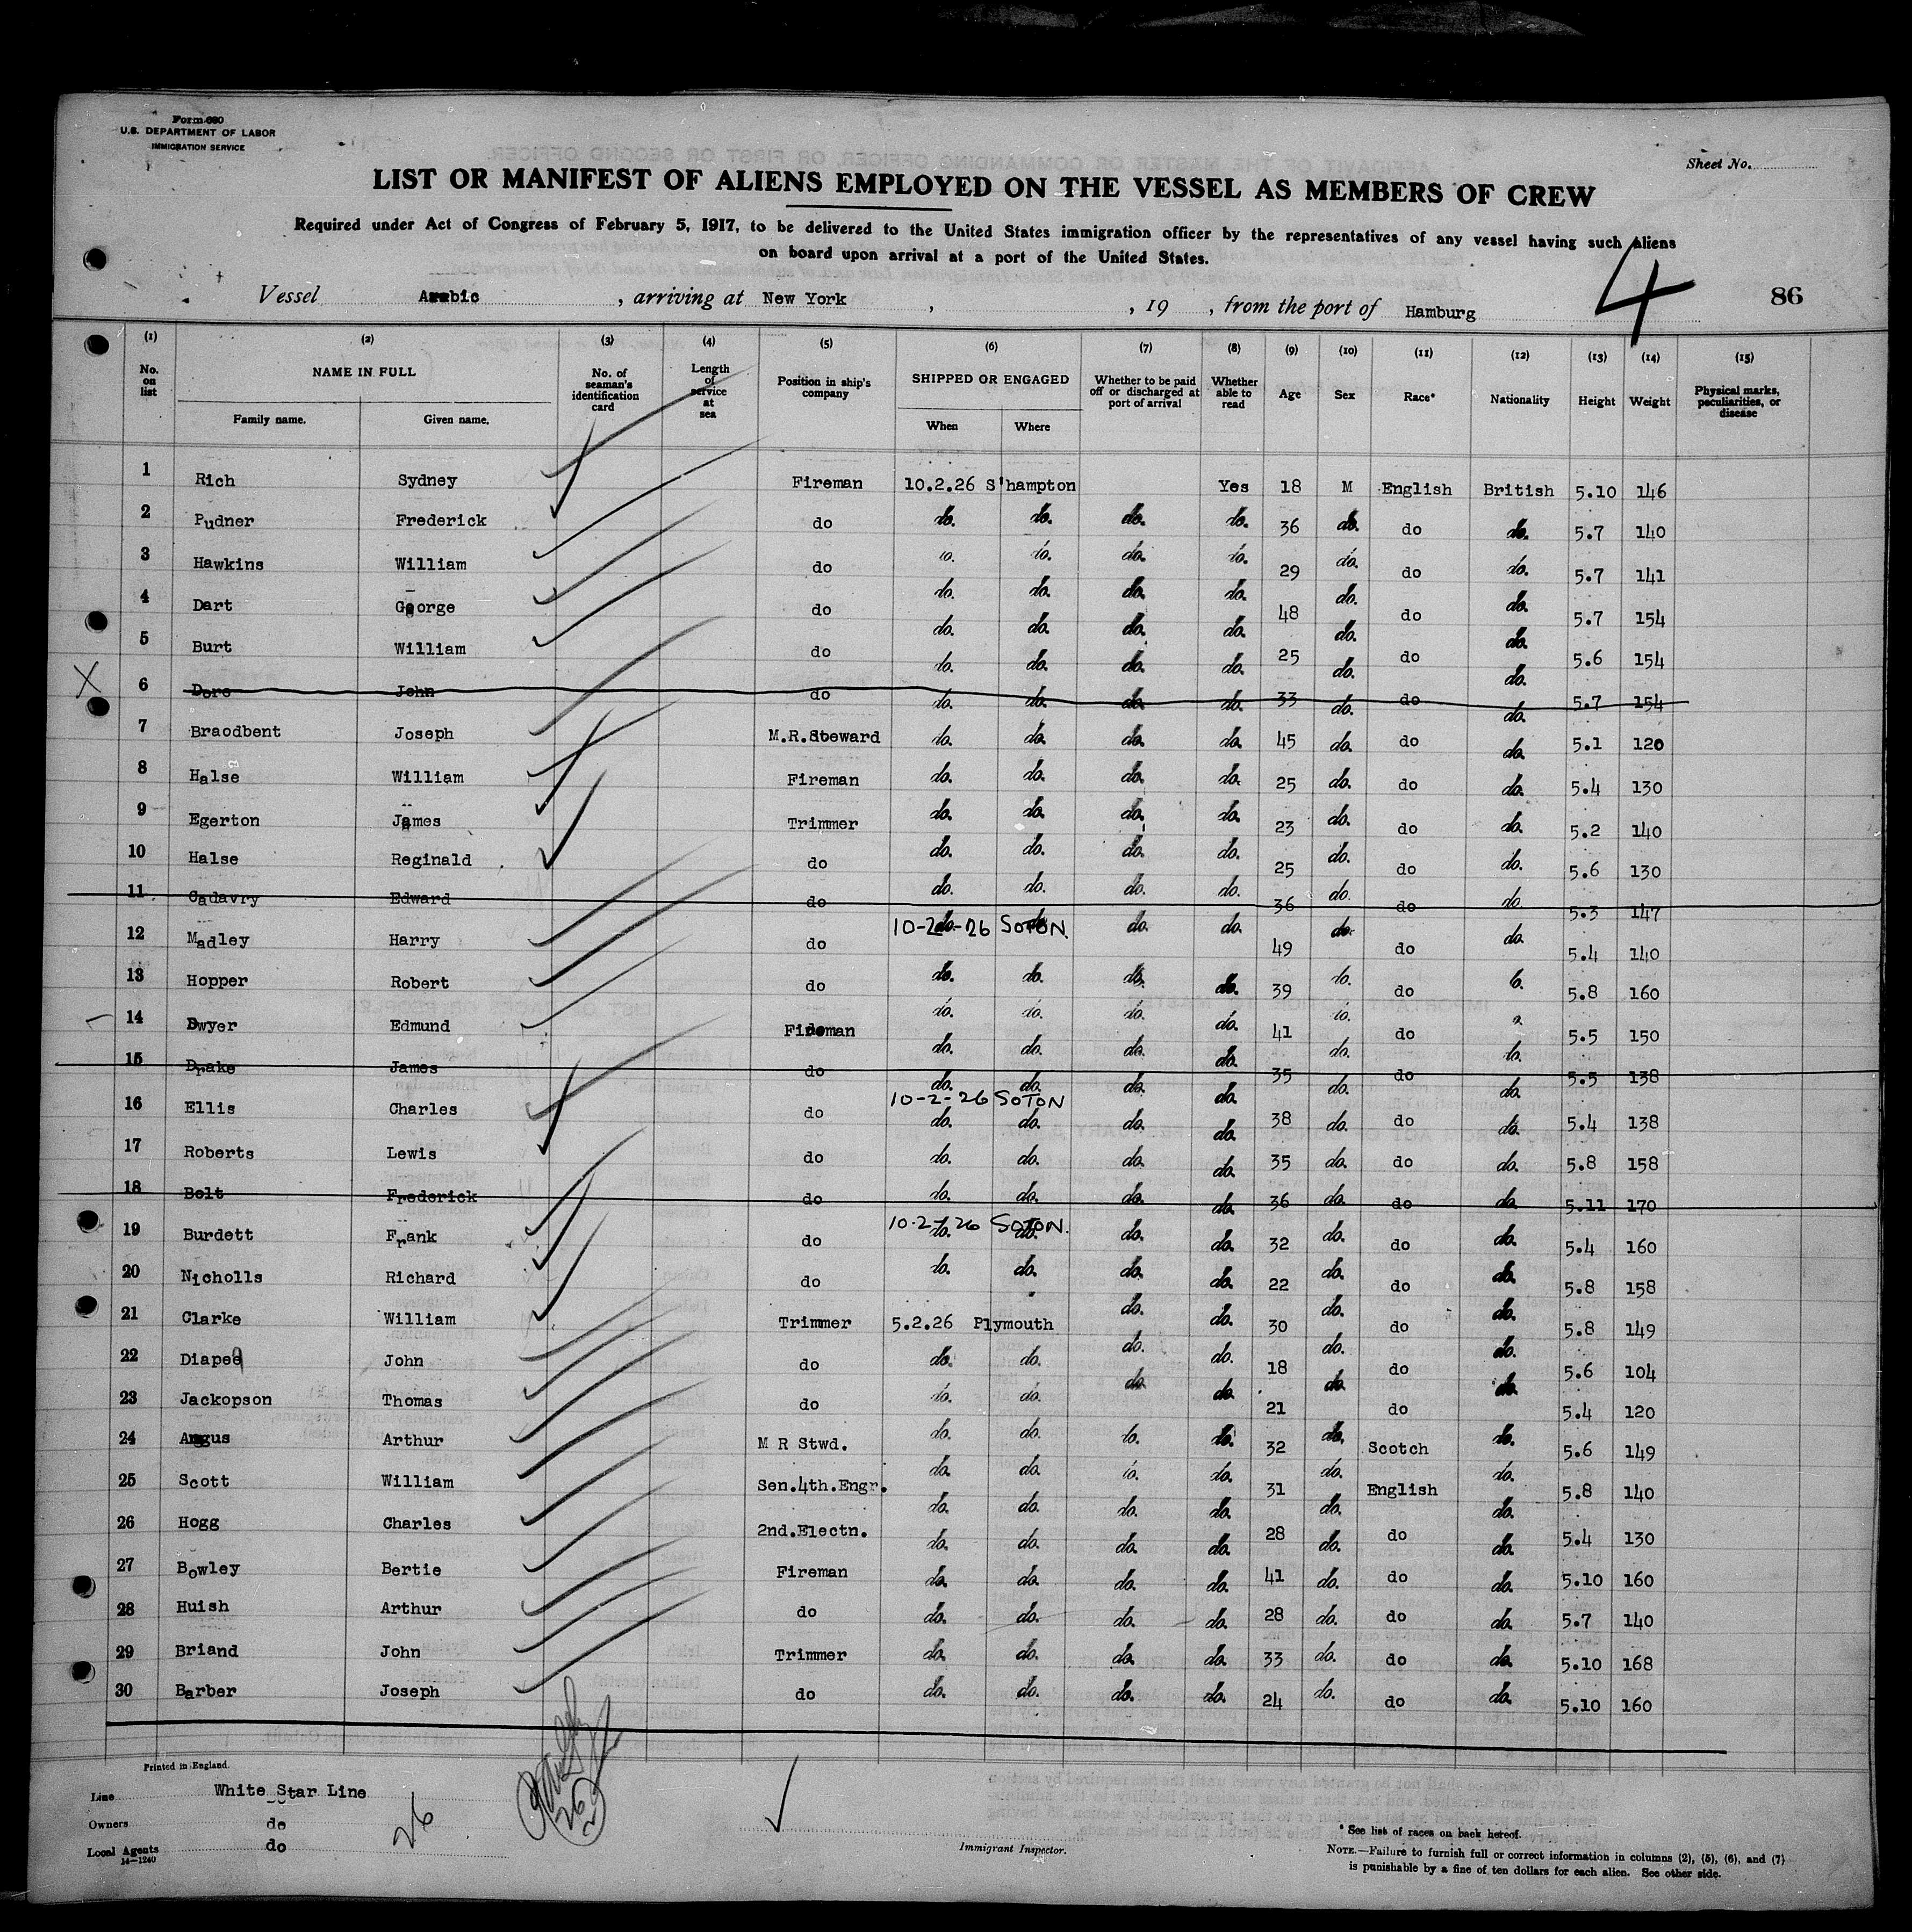 Form 680
U.S. DEPARTMENT OF LABOR
IMMIGRATION SERVICE
Sheet No.
LIST OR MANIFEST OF ALIENS EMPLOYED ON THE VESSEL AS MEMBERS OF CREW
Required under Act of Congress of February 5, 1917, to be delivered to the United States immigration officer by the representatives of any vessel having such aliens
on board upon arrival at a port of the United States.
4
Vessel Arabic , arriving at New York , , 19 , from the port of Hamburg 86
(1) (2) (3) (4) (5) (6) (7) (8) (9) (10) (11) (12) (13) (14) (15)
No. on list NAME IN FULL Family name. Given name. No. of seaman's identification card Length of service at sea Position in ship's company SHIPPED OR ENGAGED When Where Whether to be paid off or discharged at port of arrival Whether able to read Age Sex Race* Nationality Height Weight Physical marks, peculiarities, or disease
1 Rich Sydney Fireman 10.2.26 S'hampton Yes 18 M English British 5.10 146
2 Pudner Frederick do do. do. do. do. 36 do. do do. 5.7 140
3 Hawkins William do do. do. do. do. 29 do. do do. 5.7 141
4 Dart George do do. do. do. do. 48 do. do do. 5.7 154
5 Burt William do do. do. do. do. 25 do. do do. 5.6 154
6 Dore John do do. do. do. do. 33 do. do do. 5.7 154
7 Braodbent Joseph M.R.Steward do. do. do. do. 45 do. do do. 5.1 120
8 Halse William Fireman do. do. do. do. 25 do. do do. 5.4 130
9 Egerton James Trimmer do. do. do. do. 23 do. do do. 5.2 140
10 Halse Reginald do do. do. do. do. 25 do. do do. 5.6 130
11 Cadavry Edward do do. do. do. do. 36 do. do do. 5.3 147
12 Madley Harry do 10-2-26 SOTON. do. do. 49 do. do do. 5.4 140
13 Hopper Robert do do. do. do. do. 39 do. do do. 5.8 160
14 Dwyer Edmund Fireman do. do. do. do. 41 do. do do. 5.5 150
15 Drake James do do. do. do. do. 35 do. do do. 5.5 138
16 Ellis Charles do 10-2-26 SOTON do. do. do. do. 38 do. do do. 5.4 138
17 Roberts Lewis do do. do. do. do. 35 do. do do. 5.8 158
18 Bolt Frederick do do. do. do. do. 36 do. do do. 5.11 170
19 Burdett Frank do 10-2-26 SOTON. do. do. 32 do. do do. 5.4 160
20 Nicholls Richard do do. do. do. do. 22 do. do do. 5.8 158
21 Clarke William Trimmer 5.2.26 Plymouth do. do. 30 do. do do. 5.8 149
22 Diaped John do do. do. do. do. 18 do. do do. 5.6 104
23 Jackopson Thomas do do. do. do. do. 21 do. do do. 5.4 120
24 Angus Arthur M R Stwd. do. do. do. do. 32 do. Scotch do. 5.6 149
25 Scott William Sen.4th.Engr. do. do. do. do. 31 do. English do. 5.8 140
26 Hogg Charles 2nd.Electn. do. do. do. do. 28 do. do do. 5.4 130
27 Bowley Bertie Fireman do. do. do. do. 41 do. do do. 5.10 160
28 Huish Arthur do do. do. do. do. 28 do. do do. 5.7 140
29 Briand John Trimmer do. do. do. do. 33 do. do do. 5.10 168
30 Barber Joseph do do. do. do. do. 24 do. do do. 5.10 160
Printed in England.
Line White Star Line
Owners do
Local Agents do
14—1240
26
26
Immigrant Inspector.
* See list of races on back hereof.
NOTE.—Failure to furnish full or correct information in columns (2), (5), (6), and (7)
is punishable by a fine of ten dollars for each alien. See other side.